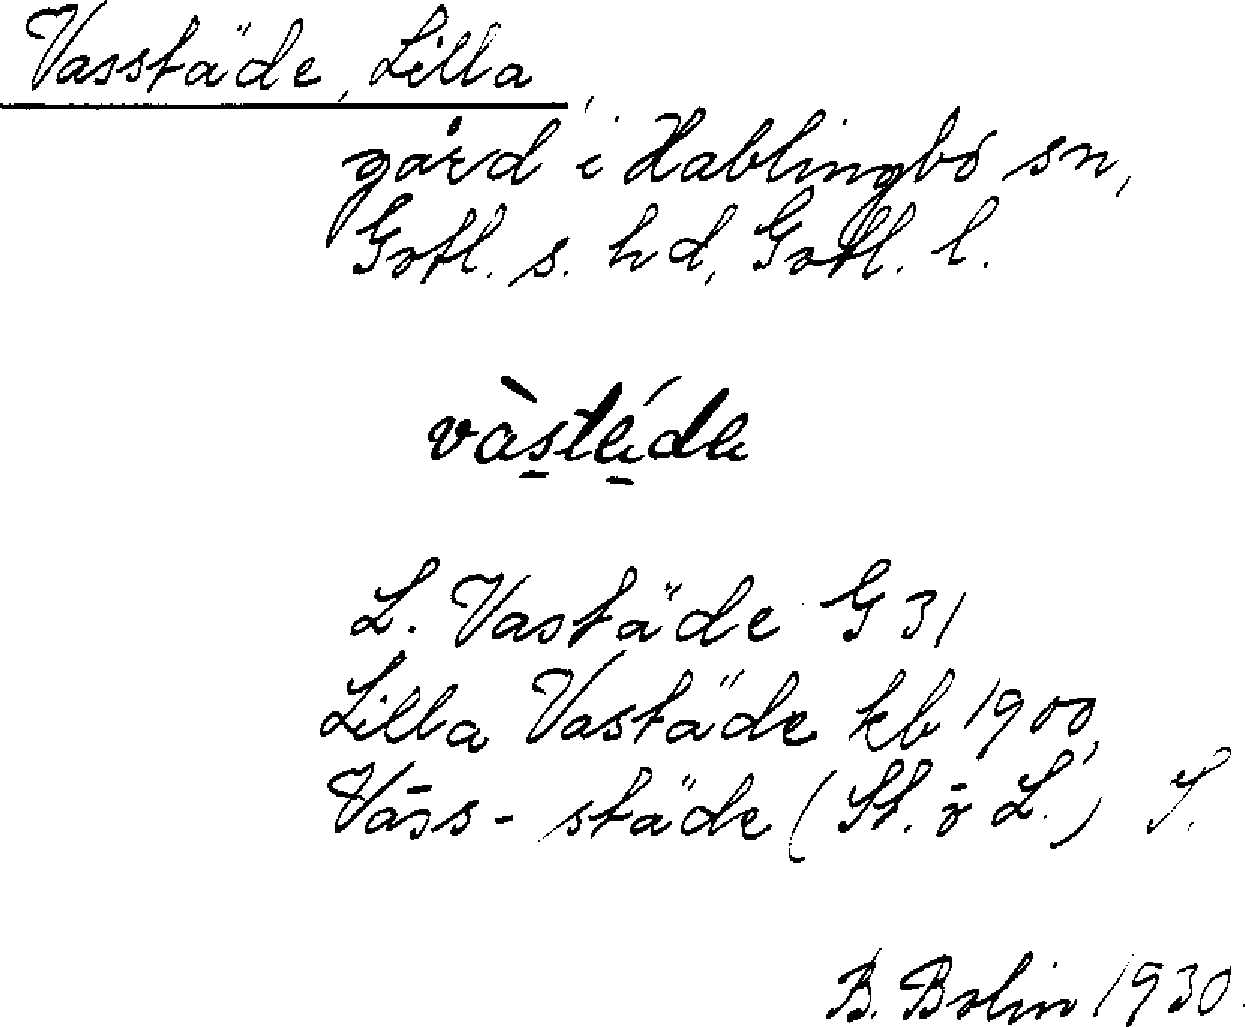 Vasstäde, Lilla,
gård i Hablingbo sn,
Gotl. s. hd, Gotl. l.
vàstéde
L. Vastäde G 31
Lilla Vastäde kb 1900,
Väss- städe (St. o L.) S.
B. Bolin 1930.